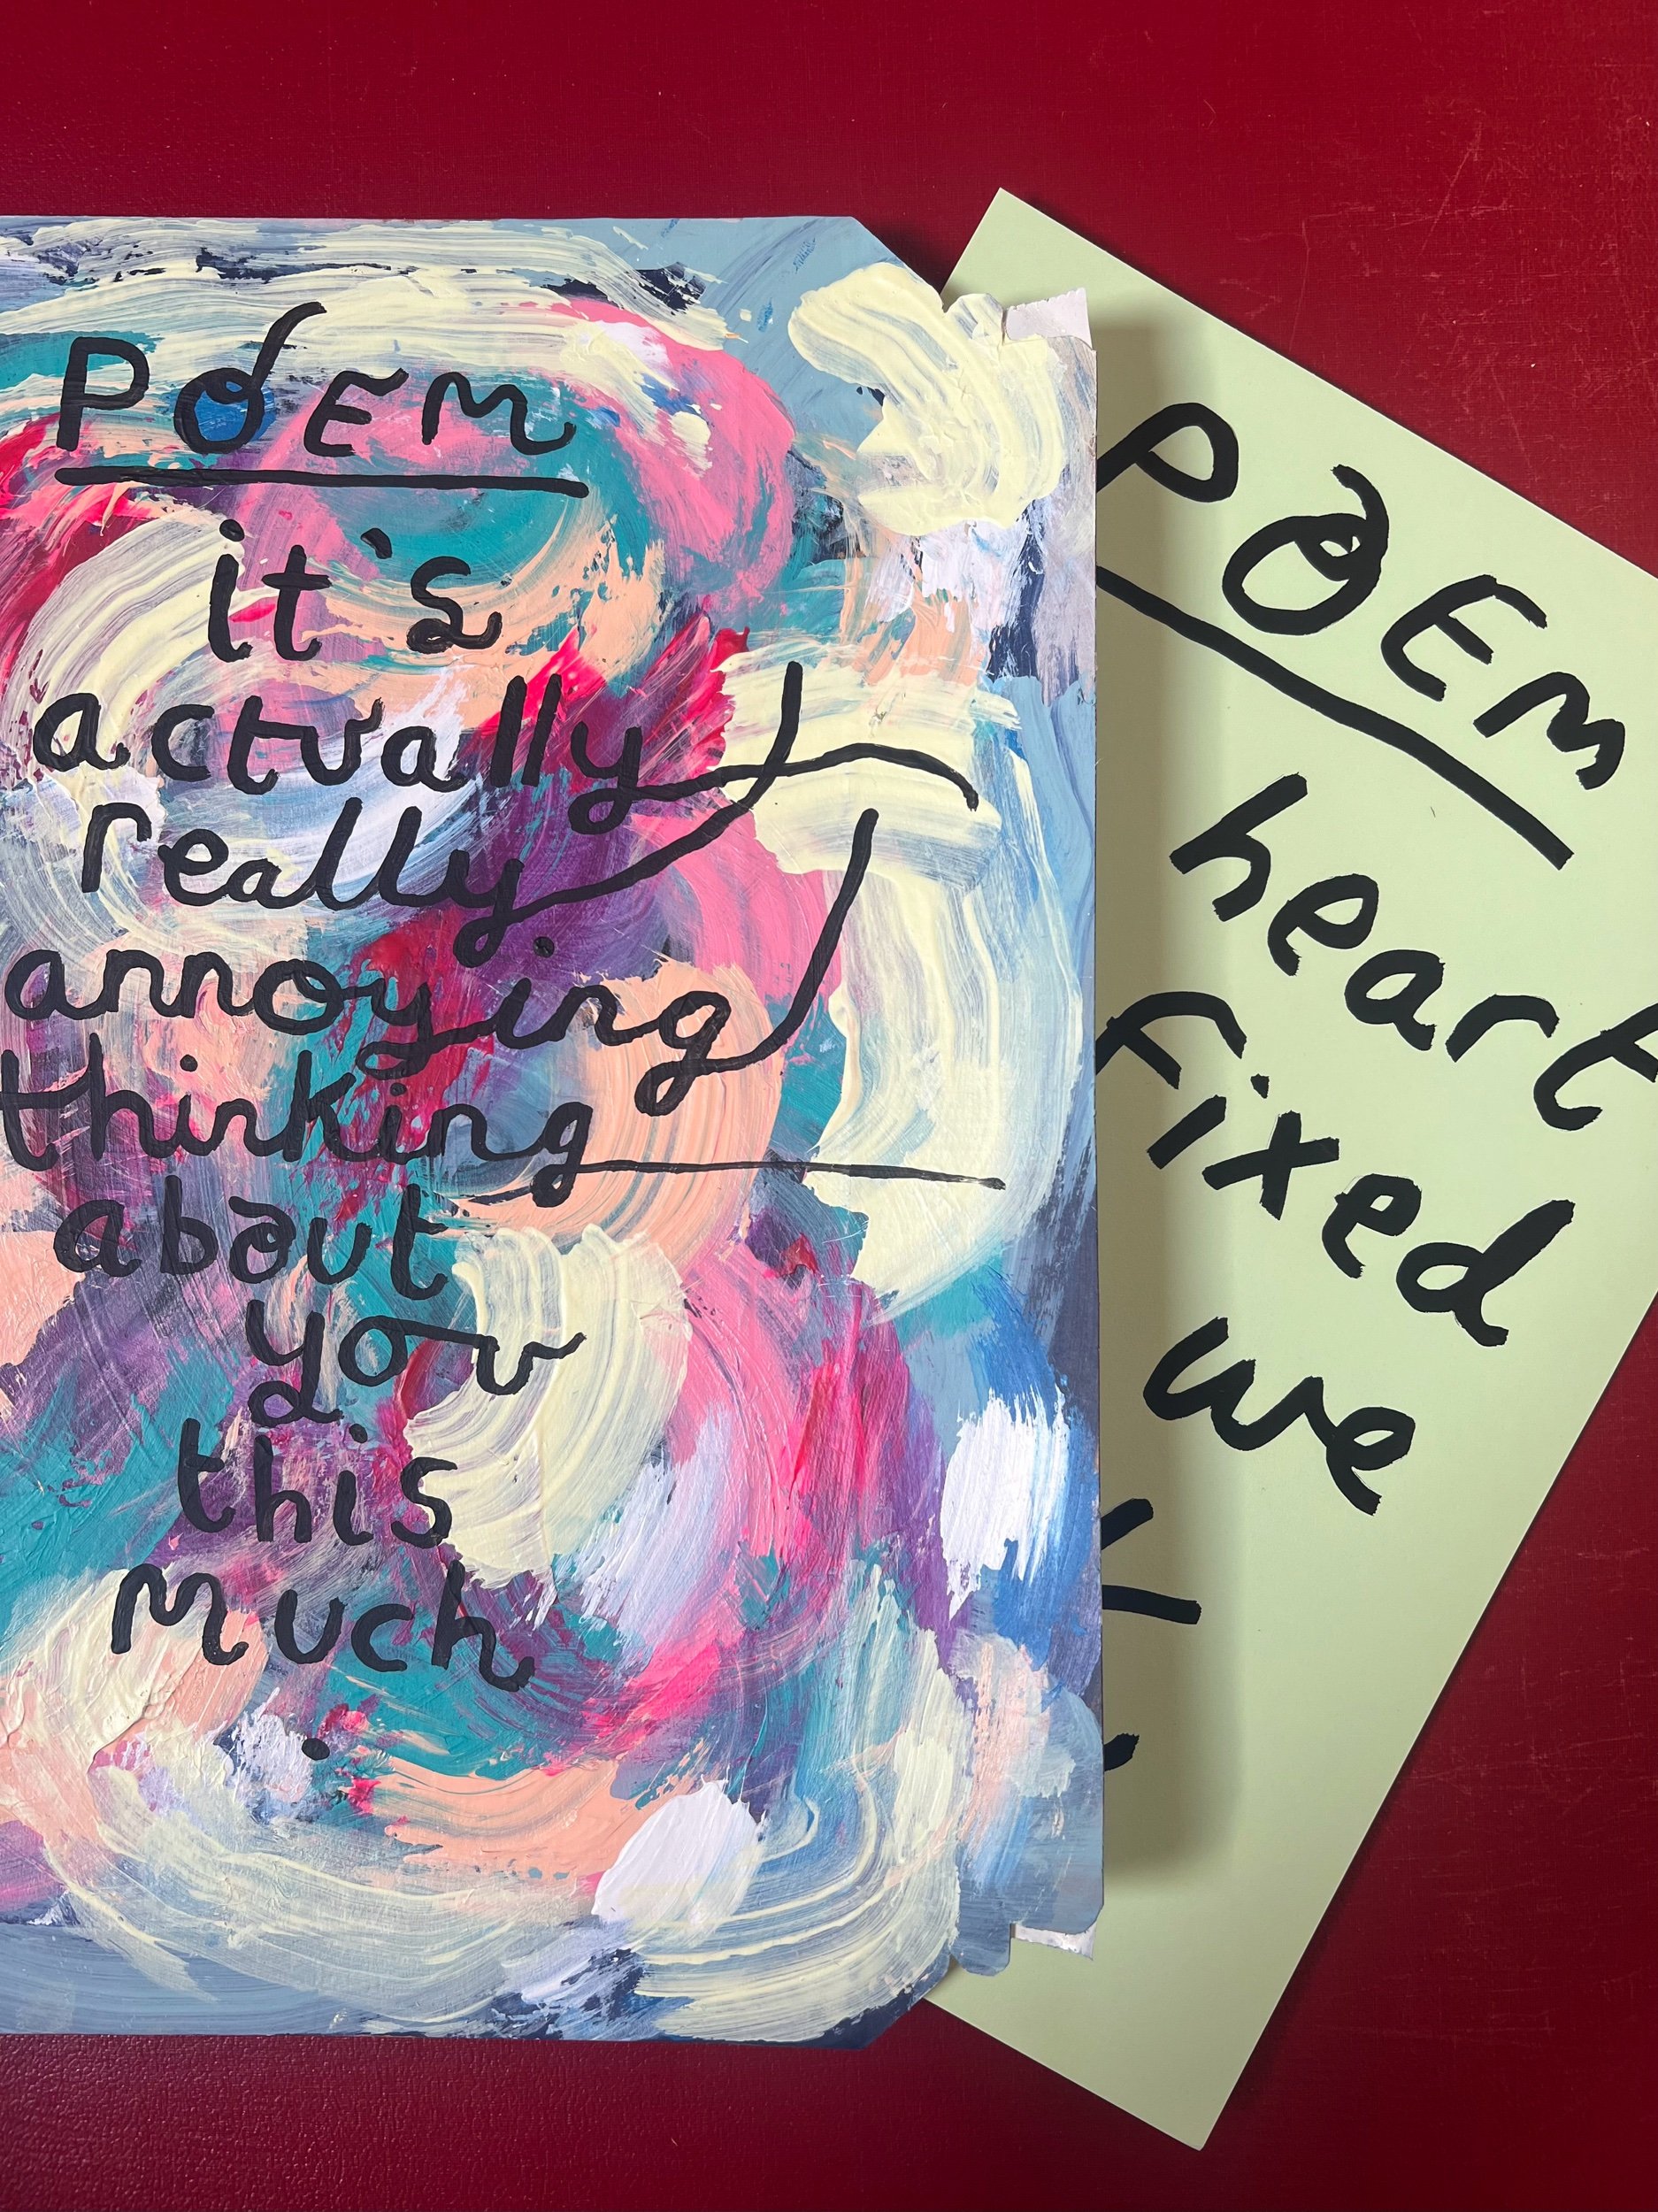 POEM
it's
actually
really
annoying
thinking
about
you
this
much
.
POEM
heart
fixed
we